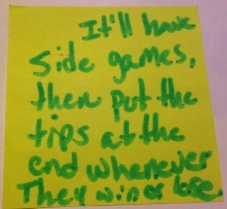 It'll have
side games,
then put the
tips at the
end whenever
They win or lose.